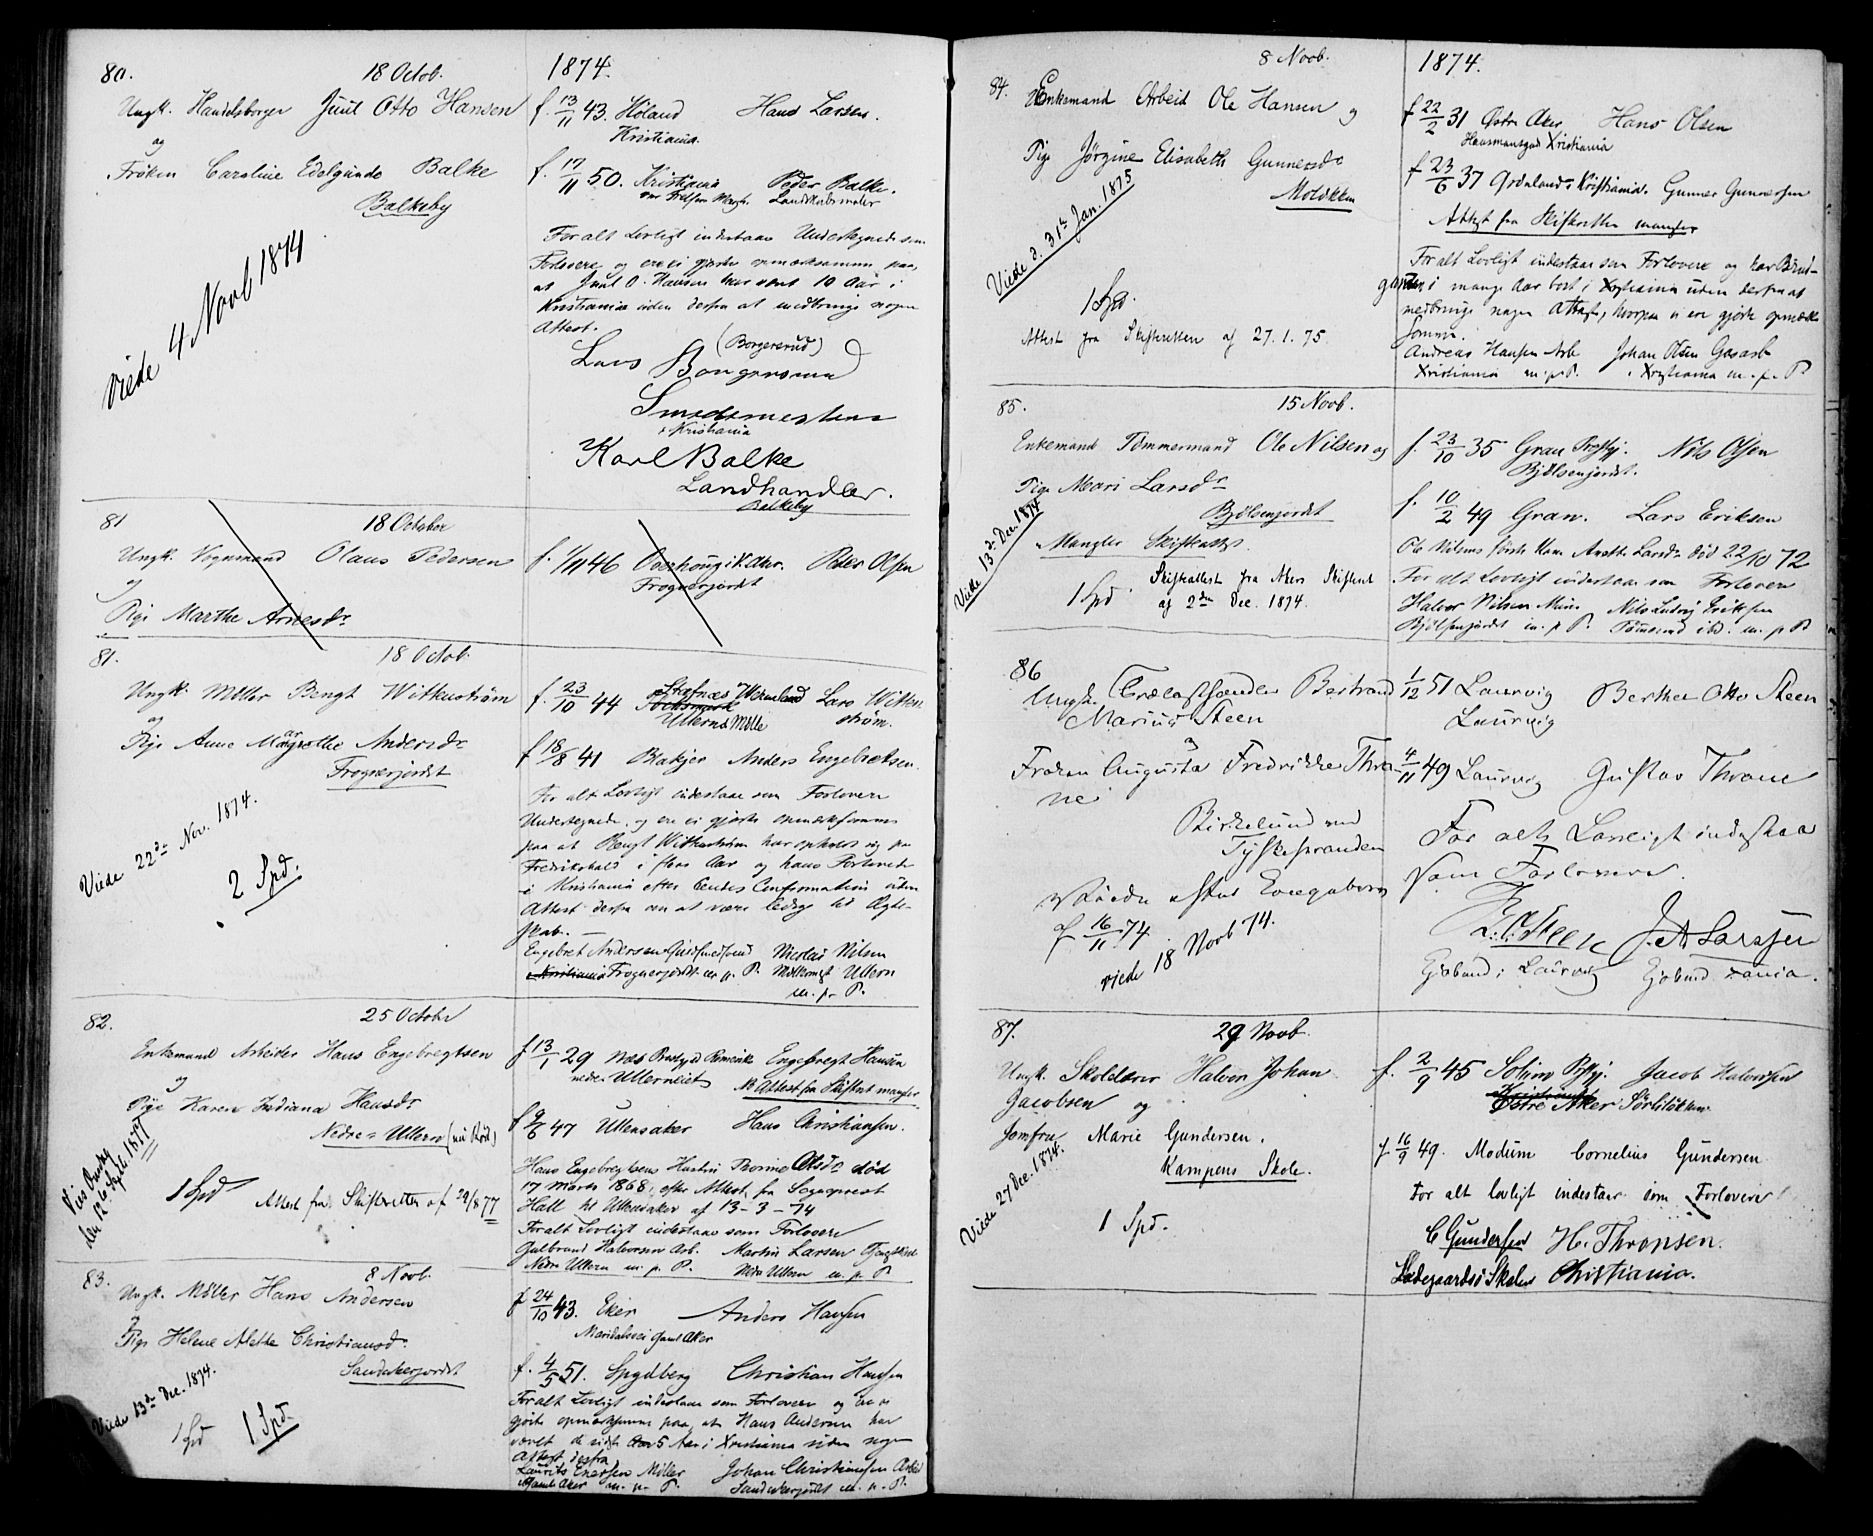 80.
18 Octob.
1874.
Ungk. Handelsborger Juul Otto Hansen
f. 13/11 43. Høland Hans Larsen.
Kristiania.
og
Frøken Caroline Edelgunde Balke
f. 17/11 50. Kristiania Peder Balke.
Landskabsmaler
Balkeby
For alt Lovligt indestaae Undertegnede som
Forlovere og ere vi gjorte opmærksomme paa,
at Juul O. Hansen har været 10 Aar i
Kristiania uden derfra at medbringe nogen
Attest.
Viede 4 Novb 1874
(Borgersrud)
Lars Borgersrud
Smedemester
i Kristiania
Karl Balke
Landhandler.
Balkeby
81
18 October
Ungk. Vognmand Olaus Pedersen
f. 1/11 46 Peder Olsen
Frognerjordet
og
Pige Marthe Arnesdr
81.
18 Octob.
Ungk. Møller Bengt Wittenström
f. 23/10 44 Wermland Lars Witten
ström.
Ullerns Mølle
og
Pige Anne Margrethe Andersdr
f 18/8 41 Blakjer Anders Engebretsen.
Frognerjordet
For alt Lovligt indestaae som Forlovere
Undertegnede, og ere vi gjorte opmærksomme
paa at Bengt Wittenström har opholdt sig paa
Fredrikshald i flere Aar og hans Forlovede
i Kristiania efter hendes Confirmation uden
Attest derfra om at være ledig til Ægte-
skab.
Viede 22de Nov. 1874.
2 Spd.
Engebret Andersen Nicolai Nilsen
Kristiania Frognerjordet m. p. P. Møllersvt Ullern
m. p. P.
82.
25 October
Enkemand Arbeider Hans Engebregtsen
f 13/1 29 Næs Prestgjd Romerike Engebregt Hansen
nedre Ullerneiet NB Attest fra Skifteret mangler
og
Pige Karen Indiana Hansdr
f 9/6 47 Ullensaker Hans Christiansen.
Nedre Ullern (nu Røa)
Hans Engebregtsens Hustru Thorine Olsdr død
17 Marts 1868, efter Attest fra Sogneprest
Hall til Ullensaker af 13-3-74
For alt Lovligt indestaae som Forlovere
Gulbrand Halvorsen Arb. Martin Larsen
Nedre Ullern m. p. P. Nedre Ullern m. p. P
Viet Onsdag
den 12te Sept. 1877
1 Spd
Attest fra Skifteretten af 29/8 77
83.
8 Novb.
Ungk. Møller Hans Andersen
f 24/10 43. Eker Anders Hansen
Maridalsvei Gaml Aker
og
Pige Helene Alette Christiansdr
f. 4/5 51. Spydberg Christian Hansen
Sandakerjordet
For alt Lovligt indestaae som Forlovere og ere vi
gjorte opmærksomme paa, at Hans Andersen har
været de sidste 5 Aar i Xristiania uden nogen
Attest derfra
Laurits Enersen Møller Johan Christiansen Arbeid
Gamle Aker m. p. P. Sandakerjordet m. p. P.
Viede 13de Dec. 1874.
1 Spd
1 Spd.
84.
8 Novb.
1874.
Enkemand Arbeid Ole Hansen og
f 22/2 31 Østre Aker Hans Olsen
Hausmansgad Xristiania
Pige Jørgine Elisabeth Gunnersdr
f 23/6 37 Grønland Kristiania. Gunner Gunnersen
Moløkken
Attest fra Skifteretten mangler
For alt Lovligt indestaae som Forlovere og har Brud-
gommen i mange Aar boet i Xristiania uden derfra at
medbringe nogen Attest, hvorpaa vi ere gjorte opmærk-
somme.
Andreas Hansen Arb Johan Olsen Gasarb
Xristiania m. p. P. Xristiania m. p. P
Viede d. 31te Jan. 1875
1 Spd.
Attest fra Skifteretten af 27.1.75.
85.
15 Novb.
Enkemand Tømmermand Ole Nilsen og
f. 23/10 35 Gran Prestgj. Nils Olsen
Bjølsenjordet.
Pige Mari Larsdr
f. 10/2 49 Gran. Lars Eriksen
Bjølsenjordet
Mangler Skifteattest.
Ole Nilsens første Kone Anette Larsdr død 22/10 72
For alt Lovligt indestaae som Forlovere
Halvor Nilsen Nils Ludvig Eriksen
Bjølsenjordet m. p. P. Tømmermd ibd. m. p P
Viede 13de Dec. 1874
1 Spd
Skifteattest fra Akers Skifteret
af 2den Dec. 1874.
86
Ungk. Trælasthandler Bertrand
Marius Steen
1/12 51 Laurvig Berthel Otto Steen
Laurvig
og
Frøken Augusta Fredrikke Thra-
ne
4/11 49 Laurvig Gustav Thrane
Birkelund ved
Tyskestranden
For alt Lovligt indestaa
som Forlovere.
Viede efter Kongebrev
af 16/11 74
viede 18 Novb 74.
Steen J. A. Larssen
Gjøbmd i Laurvig Gjøbmd Xania.
87.
29 Novb.
Ungk. Skolelærer Halvor Johan
Jacobsen og
f. 2/9 45 Solum Pgj. Jacob Halvorsen
Østre Aker Sørliløkken
Jomfru Marie Gundersen.
f 16/9 49. Modum Cornelius Gundersen
Kampens Skole.
For alt lovligt indestaar som Forlovere
C Gundersen H. Thronsen.
Ladegaardsø Skole Christiania.
Viede 27 Dec. 1874.
1 Spd.